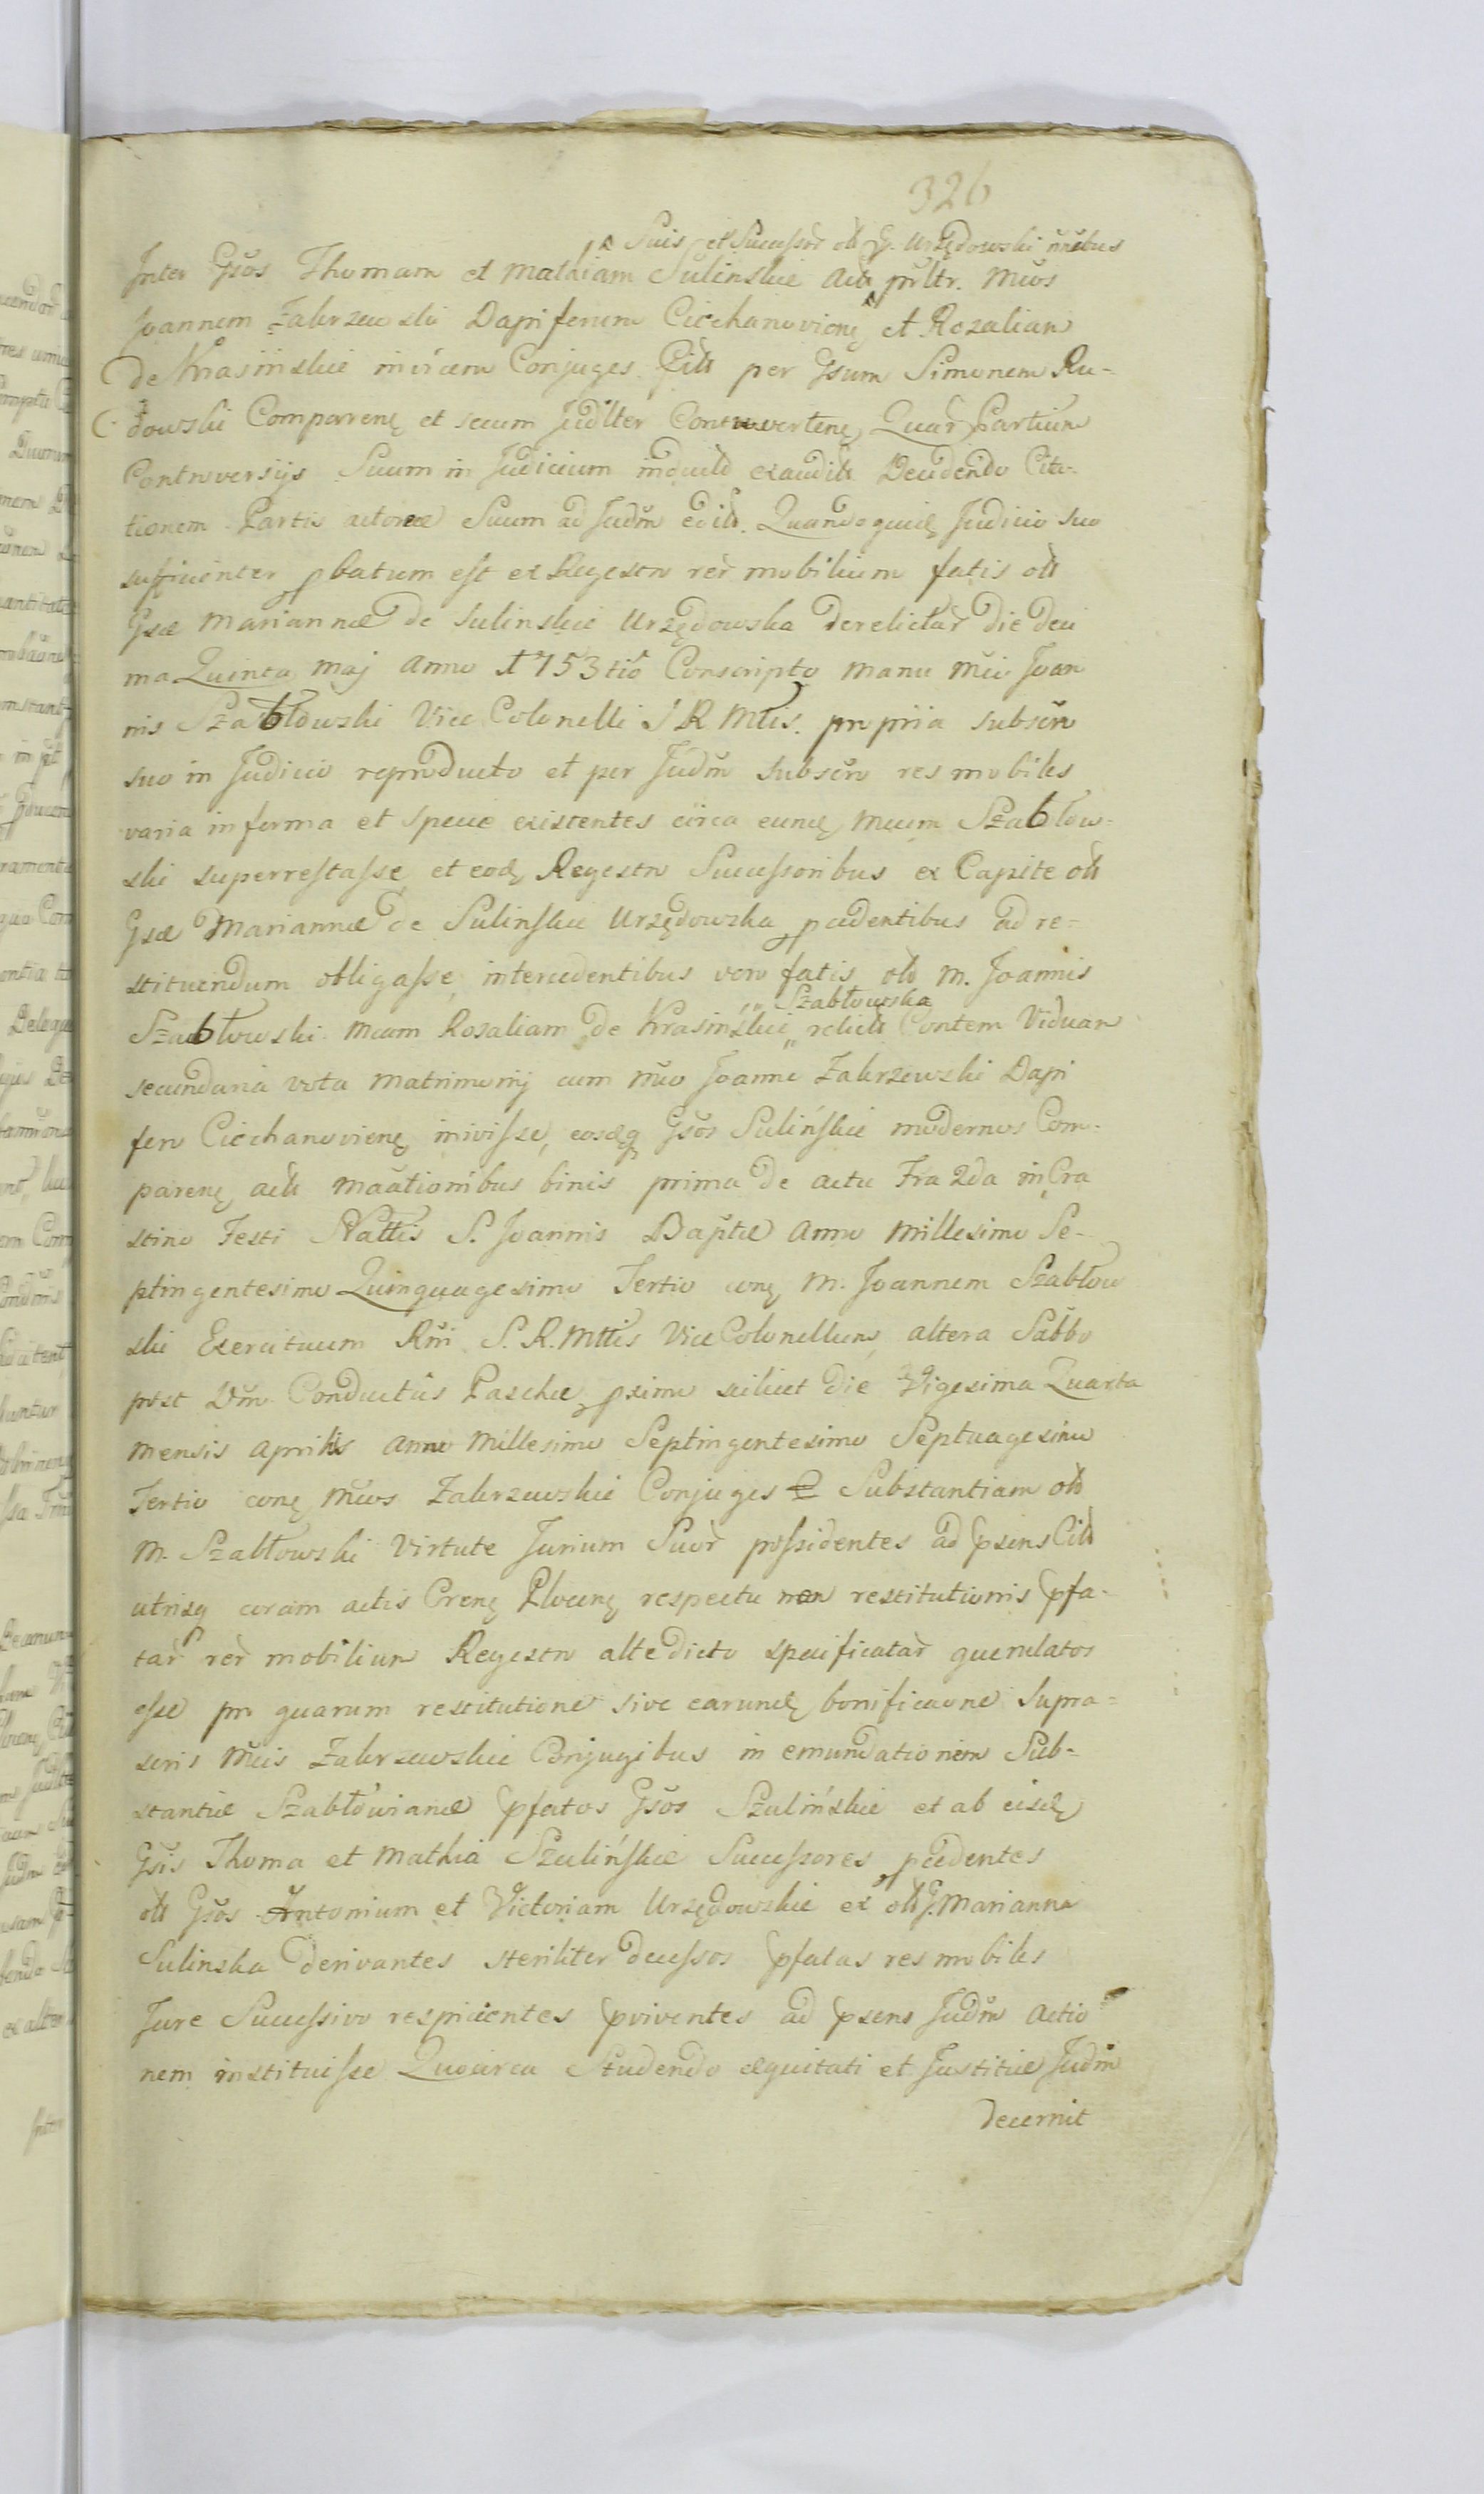 326
Suis et Successor̃ olt G. Urzędowski nñibus
Inter Gsos Thomam et Mathiam Sulinskie Act prltr. Mcos
Joannem Zakrzewski Dapiferum Ciechanovienę et Rozaliam
de Krasinskie invicem Conjuges Citt per Gsum Simonem Ru-
dowski Comparenę et secum Judlter Controvertenę Quar̃ Partium
Controversijs Suum in Judicium exauditt Decidendo Cita-
tionem Partis actoreæ Suum ad Judm Quandoquidę Judicio suo
sufficienter pbatum est ex Regestro rer̃ mobilium fatis olt
Gsæ Mariannæ de Sulinskie Urzędowska derelictar̃ die deci
ma Quinta Maj Anno 1753tio Conscripto manu Mci Joan
nis Szabłowski Vice Colonelli S R Mttis. propria subscr̃
suo in Judicio reproducto et per Judm subscr̃o res mobiles
varia in forma et specie existentes circa eundę Mcum Szabłow-
ski superrestasse, et eodę Regestro Successoribus ex Capite olt
Gsæ Mariannæ de Sulinskie Urzędowska pcedentibus ad re=
stituendum obligasse, intercedentibus vero fatis olt M. Joannis
Szabłowska
Szabłowski Mcam Rosaliam de Krasińskie relictt Contem Viduam
secundaria vota matrimonij cum Mco Joanne Zakrzewski Dapi
fero Ciechanovienę inivisse, eosdęq Gsos Sulińskie modernos Com-
parenę actt binis prima de actu Fra 2da in Cra
stino Festi Nattis S. Joannis Baptæ Anno Millesimo Se-
ptingentesimo Quinquagesimo Tertio conę M. Joannem Szabłow
ski Exercituum Rni S. R. Mttis Vice Colonellum, altera Sabbo
post Dm̃ Conductus Paschæ pximo scilicet die Vigesima Quarta
mensis Aprilis Anno Millesimo Septingentesimo Septuagesimo
Tertio conę Mcos Zakrzewskie Conjuges Substantiam olt
M. Szabłowski Virtute Jurium Suor̃ possidentes ad psens Citt
utrisq coram actis Crenę Plocenę respectu non restitutionis pfa-
tar̃ rer̃ mobilium Regestro alte dicto specificatar̃ querulatos
esse pro quarum restitutione sive earundę bonificaone supra=
scris Mcis Zakrzewskie Conjugibus in emundationem Sub=
stantiæ Szabłowianæ pfatos Gsos Szulińskie et ab eisdę
Gsis Thoma et Mathia Szulińskie Successores pcedentes
olt Gsos Antonium et Victoriam Urzędowskie ex olt G. Marianna
Sulinska derivantes steriliter decessos pfatas res mobiles
Jure Successivo respicientes pviventes ad psens Judm Actio
nem instituisse Quocirca Studendo æquitati et Justitiæ Judm
decernit